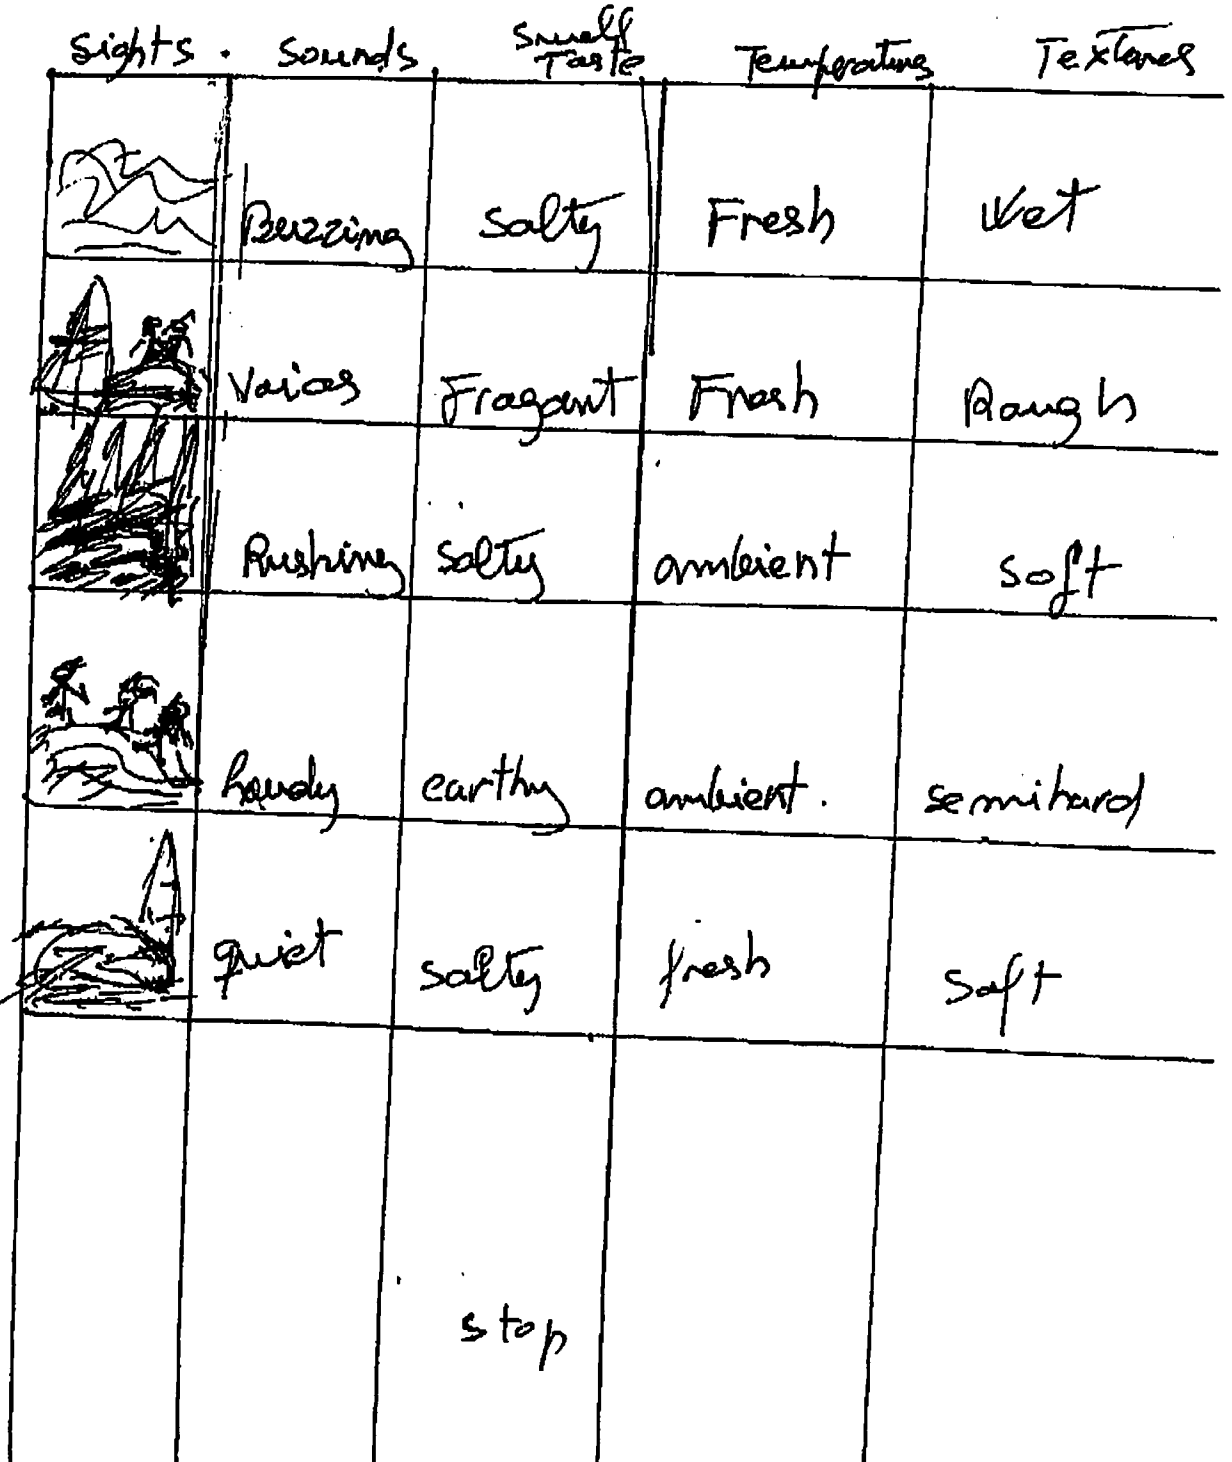 Sights . Sounds Smell Taste Temperatures Textures
Buzzing Salty Fresh Wet
Voices Fragant Fresh Rough
Rushing Salty ambient soft
earthy ambient. semihard
quiet salty fresh soft
stop